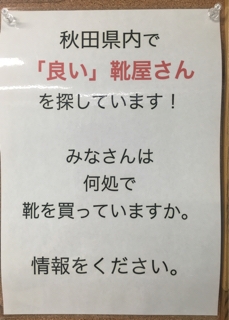 秋田県内で
「良い」靴屋さん
を探しています！
みなさんは
何処で
靴を買っていますか。
情報をください。